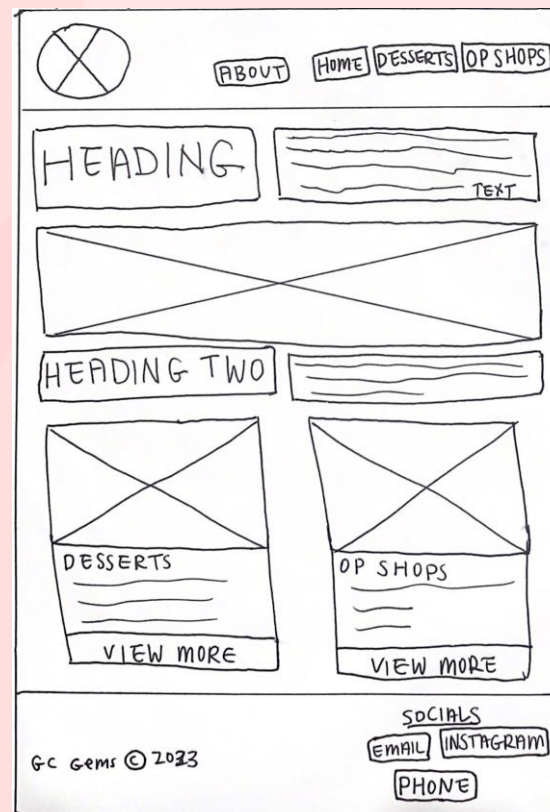 ABOUT HOME DESSERTS OP SHOPS
HEADING
TEXT
HEADING TWO
DESSERTS
VIEW MORE
OP SHOPS
VIEW MORE
GC Gems © 2023
SOCIALS
EMAIL INSTAGRAM
PHONE